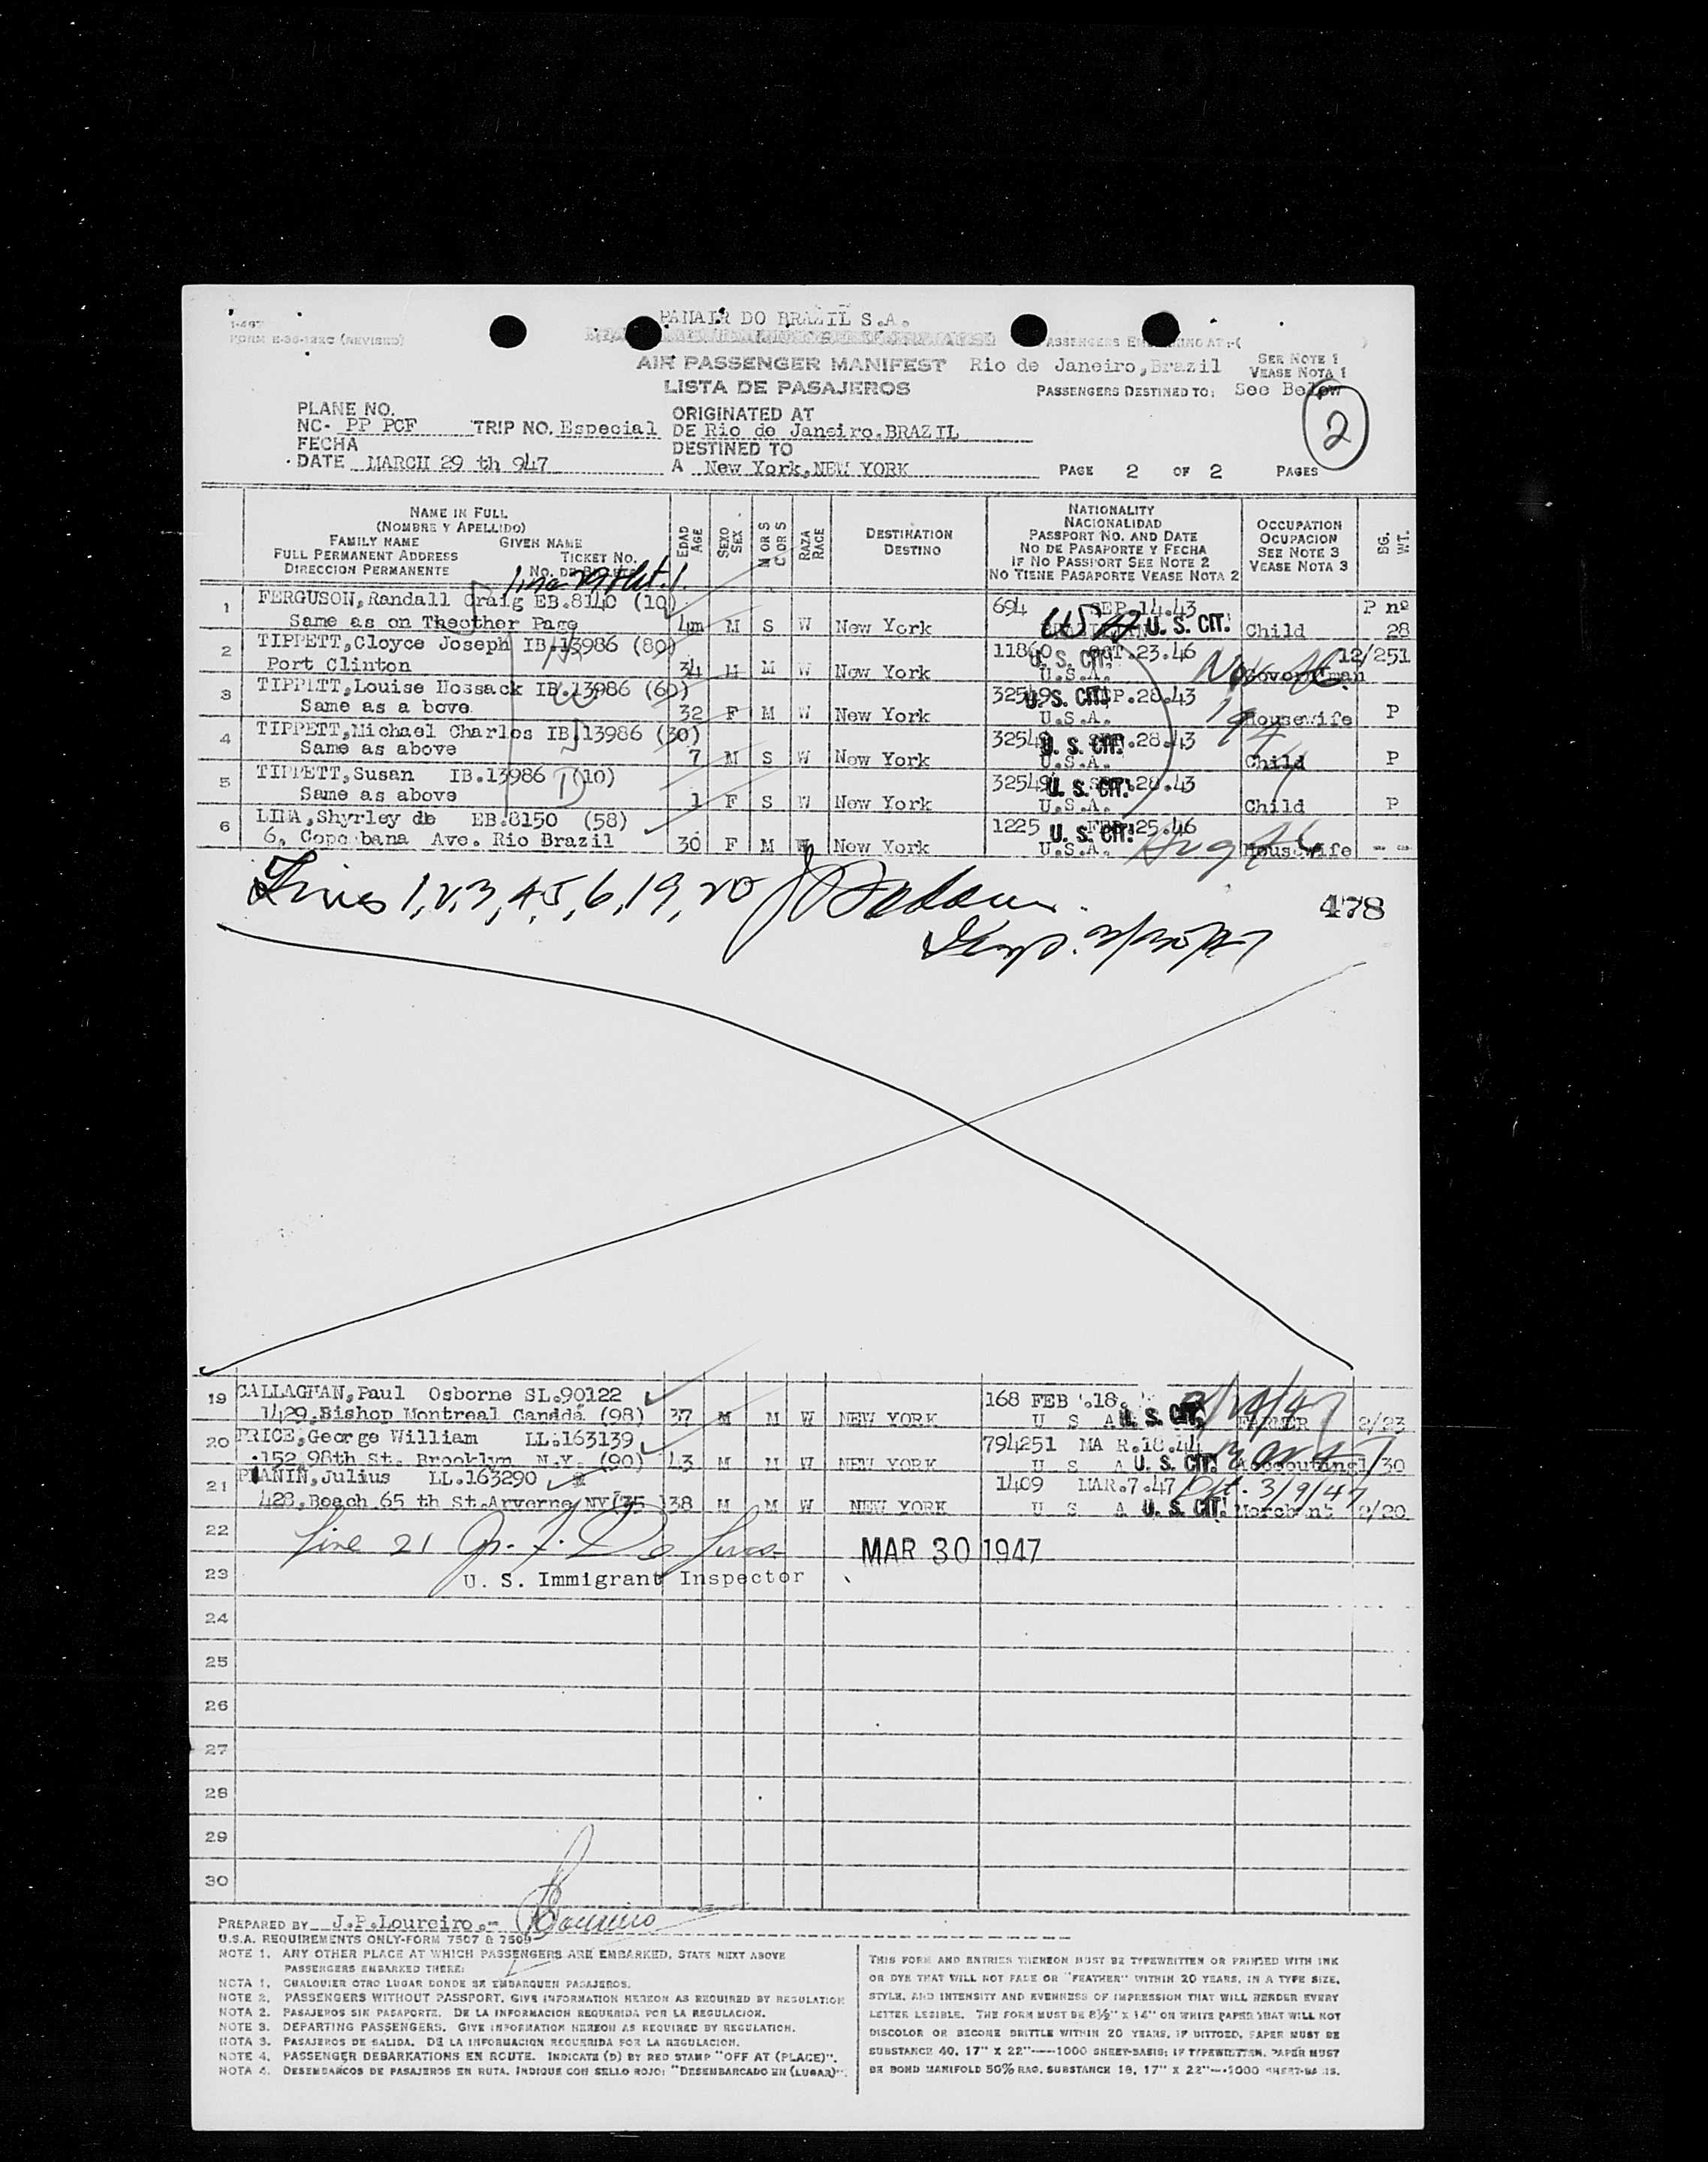 PANAIR DO BRAZIL S.A.
I-467
FORM E-36-12XC (REVISED)
PASSENGERS EMBARKING AT:-(
AIR PASSENGER MANIFEST Rio de Janeiro,Brazil SEE NOTE 1
VEASE NOTA 1
LISTA DE PASAJEROS PASSENGERS DESTINED TO: See Below
2
PLANE NO. ORIGINATED AT
NC- PP PCF TRIP NO. Especial DE Rio de Janeiro.BRAZIL
FECHA DESTINED TO
DATE MARCH 29 th 947 A New York,NEW YORK PAGE 2 OF 2 PAGES
NAME IN FULL
(NOMBRE Y APELLIDO)
FAMILY NAME GIVEN NAME
FULL PERMANENT ADDRESS TICKET NO.
DIRECCION PERMANENTE NO. DE
EDAD AGE
SEXO SEX
M OR S
C OR S
RAZA RACE
DESTINATION
DESTINO
NATIONALITY
NACIONALIDAD
PASSPORT NO. AND DATE
NO DE PASAPORTE Y FECHA
IF NO PASSPORT SEE NOTE 2
NO TIENE PASAPORTE VEASE NOTA 2
OCCUPATION
OCUPACION
SEE NOTE 3
VEASE NOTA 3
BG. WT.
1 FERGUSON,Randall Craig EB.8140 (10) 694 SEP.14.43 P nº
Same as on Theother Page 4m M S W New York U. S. CIT. Child 28
2 TIPPETT,Cloyce Joseph IB.13986 (80) 11860 OCT.23.46 12/251
Port Clinton 34 M M W New York U. S. CIT. U.S.A. Governman
3 TIPPETT,Louise Hossack IB.13986 (60) 32549 SEP.28.43
Same as a bove 32 F M W New York U. S. CIT. U.S.A. Housewife P
4 TIPPETT,Michael Charles IB.13986 (30) 32549 SEP.28.43
Same as above 7 M S W New York U. S. CIT. U.S.A. Child P
5 TIPPETT,Susan IB.13986 (10) 32549 SEP.28.43
Same as above 1 F S W New York U. S. CIT. U.S.A. Child P
6 LIMA,Shyrley de EB.8150 (58) 1225 FEB.25.46
6, Copacbana Ave. Rio Brazil 30 F M W New York U. S. CIT. U.S.A. Housewife
Lines 1,2,3,4,5,6,19,20
478
Insp. 3/30/47
19 CALLAGHAN,Paul Osborne SL.90122 168 FEB .18.
1429,Bishop Montreal Canáda (98) 37 M M W NEW YORK U S A U. S. CIT. FARMER 2/23
20 PRICE,George William LL.163139 794251 MA R.18.44
152 98th St. Brooklyn N.Y. (90) 43 M M W NEW YORK U S A U. S. CIT. Accoouting 1/30
21 PLANIN,Julius LL.163290 1409 MAR.7.47 3/9/47
428,Beach 65 th St.Arverne NY(75 38 M M W NEW YORK U S A U. S. CIT. Merchant 2/20
22 Line 21 MAR 30 1947
23 U. S. Immigrant Inspector
24
25
26
27
28
29
30
PREPARED BY J.P.Loureiro.-
U.S.A. REQUIREMENTS ONLY-FORM 7507 & 7509
NOTE 1. ANY OTHER PLACE AT WHICH PASSENGERS ARE EMBARKED, STATE NEXT ABOVE
PASSENGERS EMBARKED THERE:
NOTA 1. CUALQUIER OTRO LUGAR DONDE SE EMBARQUEN PASAJEROS.
NOTE 2. PASSENGERS WITHOUT PASSPORT. GIVE INFORMATION HEREON AS REQUIRED BY REGULATION
NOTA 2. PASAJEROS SIN PASAPORTE. DE LA INFORMACION REQUERIDA POR LA REGULACION.
NOTE 3. DEPARTING PASSENGERS. GIVE INFORMATION HEREON AS REQUIRED BY REGULATION.
NOTA 3. PASAJEROS DE SALIDA. DE LA INFORMACION REQUERIDA POR LA REGULACION.
NOTE 4. PASSENGER DEBARKATIONS EN ROUTE. INDICATE (D) BY RED STAMP "OFF AT (PLACE)".
NOTA 4. DESEMBARCOS DE PASAJEROS EN RUTA. INDIQUE CON SELLO ROJO: "DESEMBARCADO EN (LUGAR)".
THIS FORM AND ENTRIES THEREON MUST BE TYPEWRITTEN OR PRINTED WITH INK
OR DYE THAT WILL NOT FADE OR "FEATHER" WITHIN 20 YEARS, IN A TYPE SIZE,
STYLE, AND INTENSITY AND EVENNESS OF IMPRESSION THAT WILL RENDER EVERY
LETTER LEGIBLE. THE FORM MUST BE 8½" X 14" ON WHITE PAPER THAT WILL NOT
DISCOLOR OR BECOME BRITTLE WITHIN 20 YEARS. IF DITTOED, PAPER MUST BE
SUBSTANCE 40, 17" X 22"----1000 SHEET-BASIS; IF TYPEWRITTEN, PAPER MUST
BE BOND MANIFOLD 50% RAG, SUBSTANCE 18, 17" X 22"---1000 SHEET-BASIS.